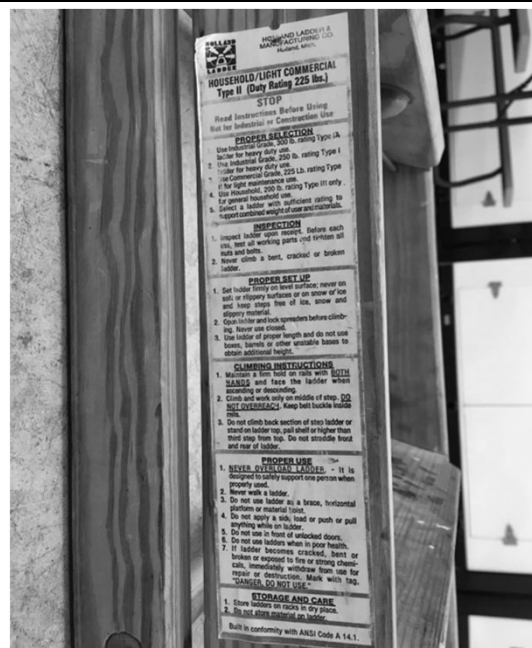 HOLLAND
LADDER
HOLLAND LADDER &
MANUFACTURING CO.
Holland, Mich.
HOUSEHOLD/LIGHT COMMERCIAL
Type II (Duty Rating 225 lbs.)
STOP
Read Instructions Before Using
Not for Industrial or Construction Use
PROPER SELECTION
Use Industrial Grade, 300 lb. rating Type IA
ladder for heavy duty use.
2. Use Industrial Grade, 250 lb. rating Type I
ladder for heavy duty use.
Use Commercial Grade, 225 Lb. rating Type
II for light maintenance use.
4. Use Household, 200 lb. rating Type III only
for general household use.
5. Select a ladder with sufficient rating to
support combined weight of user and materials.
INSPECTION
1. Inspect ladder upon receipt. Before each
use, test all working parts and tighten all
nuts and bolts.
2. Never climb a bent, cracked or broken
ladder.
PROPER SET UP
1. Set ladder firmly on level surface; never on
soft or slippery surfaces or on snow or ice
and keep steps free of ice, snow and
slippery material.
2. Open ladder and lock spreaders before climb-
ing. Never use closed.
3. Use ladder of proper length and do not use
boxes, barrels or other unstable bases to
obtain additional height.
CLIMBING INSTRUCTIONS
1. Maintain a firm hold on rails with BOTH
HANDS and face the ladder when
ascending or descending.
2. Climb and work only on middle of step. DO
NOT OVERREACH. Keep belt buckle inside
rails.
3. Do not climb back section of step ladder or
stand on ladder top, pail shelf or higher than
third step from top. Do not straddle front
and rear of ladder.
PROPER USE
1. NEVER OVERLOAD LADDER. - It is
designed to safely support one person when
properly used.
2. Never walk a ladder.
3. Do not use ladder as a brace, horizontal
platform or material hoist.
4. Do not apply a side load or push or pull
anything while on ladder.
5. Do not use in front of unlocked doors.
6. Do not use ladders when in poor health.
7. If ladder becomes cracked, bent or
broken or exposed to fire or strong chemi-
cals, immediately withdraw from use for
repair or destruction. Mark with tag,
"DANGER, DO NOT USE."
STORAGE AND CARE
1. Store ladders on racks in dry place.
2. Do not store material on ladder.
Built in conformity with ANSI Code A 14.1.